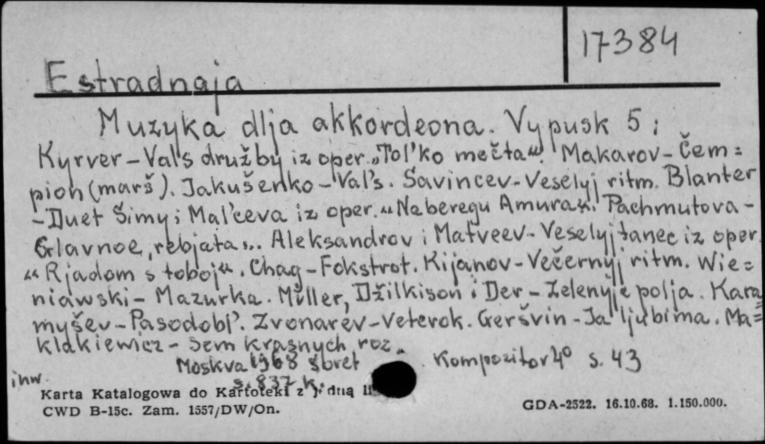 17384
Estradnaja
Muzyka dlja akkordeona. Vypusk 5:
Kyrver - Val's družby iz oper. „Tol'ko mečta“. Makarov - Čem=
pion (marš). Jakušenko - Val's. Savincev - Veselyj ritm. Blanter
- Duet Šimy i Mal'ceva iz oper. „Na beregu Amura“. Pachmutova -
Glavnoe, rebjata... Aleksandrov i Matveev - Veselyj tanec iz oper.
„Rjadom s toboj“. Chag - Fokstrot. Kijanov - Večernyj ritm. Wie=
niawski - Mazurka. Miller, Džilkison i Der - Zelenyje polja. Kara=
myšev - Pasodobl'. Zvonarev - Veterok. Geršvin - Ja ljubima. Ma=
klakiewicz - Sem krasnych roz.
Moskva 1968 Sbret Kompozitor 4° s. 43
inw. s. 837 k.
Karta Katalogowa do Kartoteki z
CWD B-15c. Zam. 1557/DW/On. GDA-2522. 16.10.68. 1.150.000.